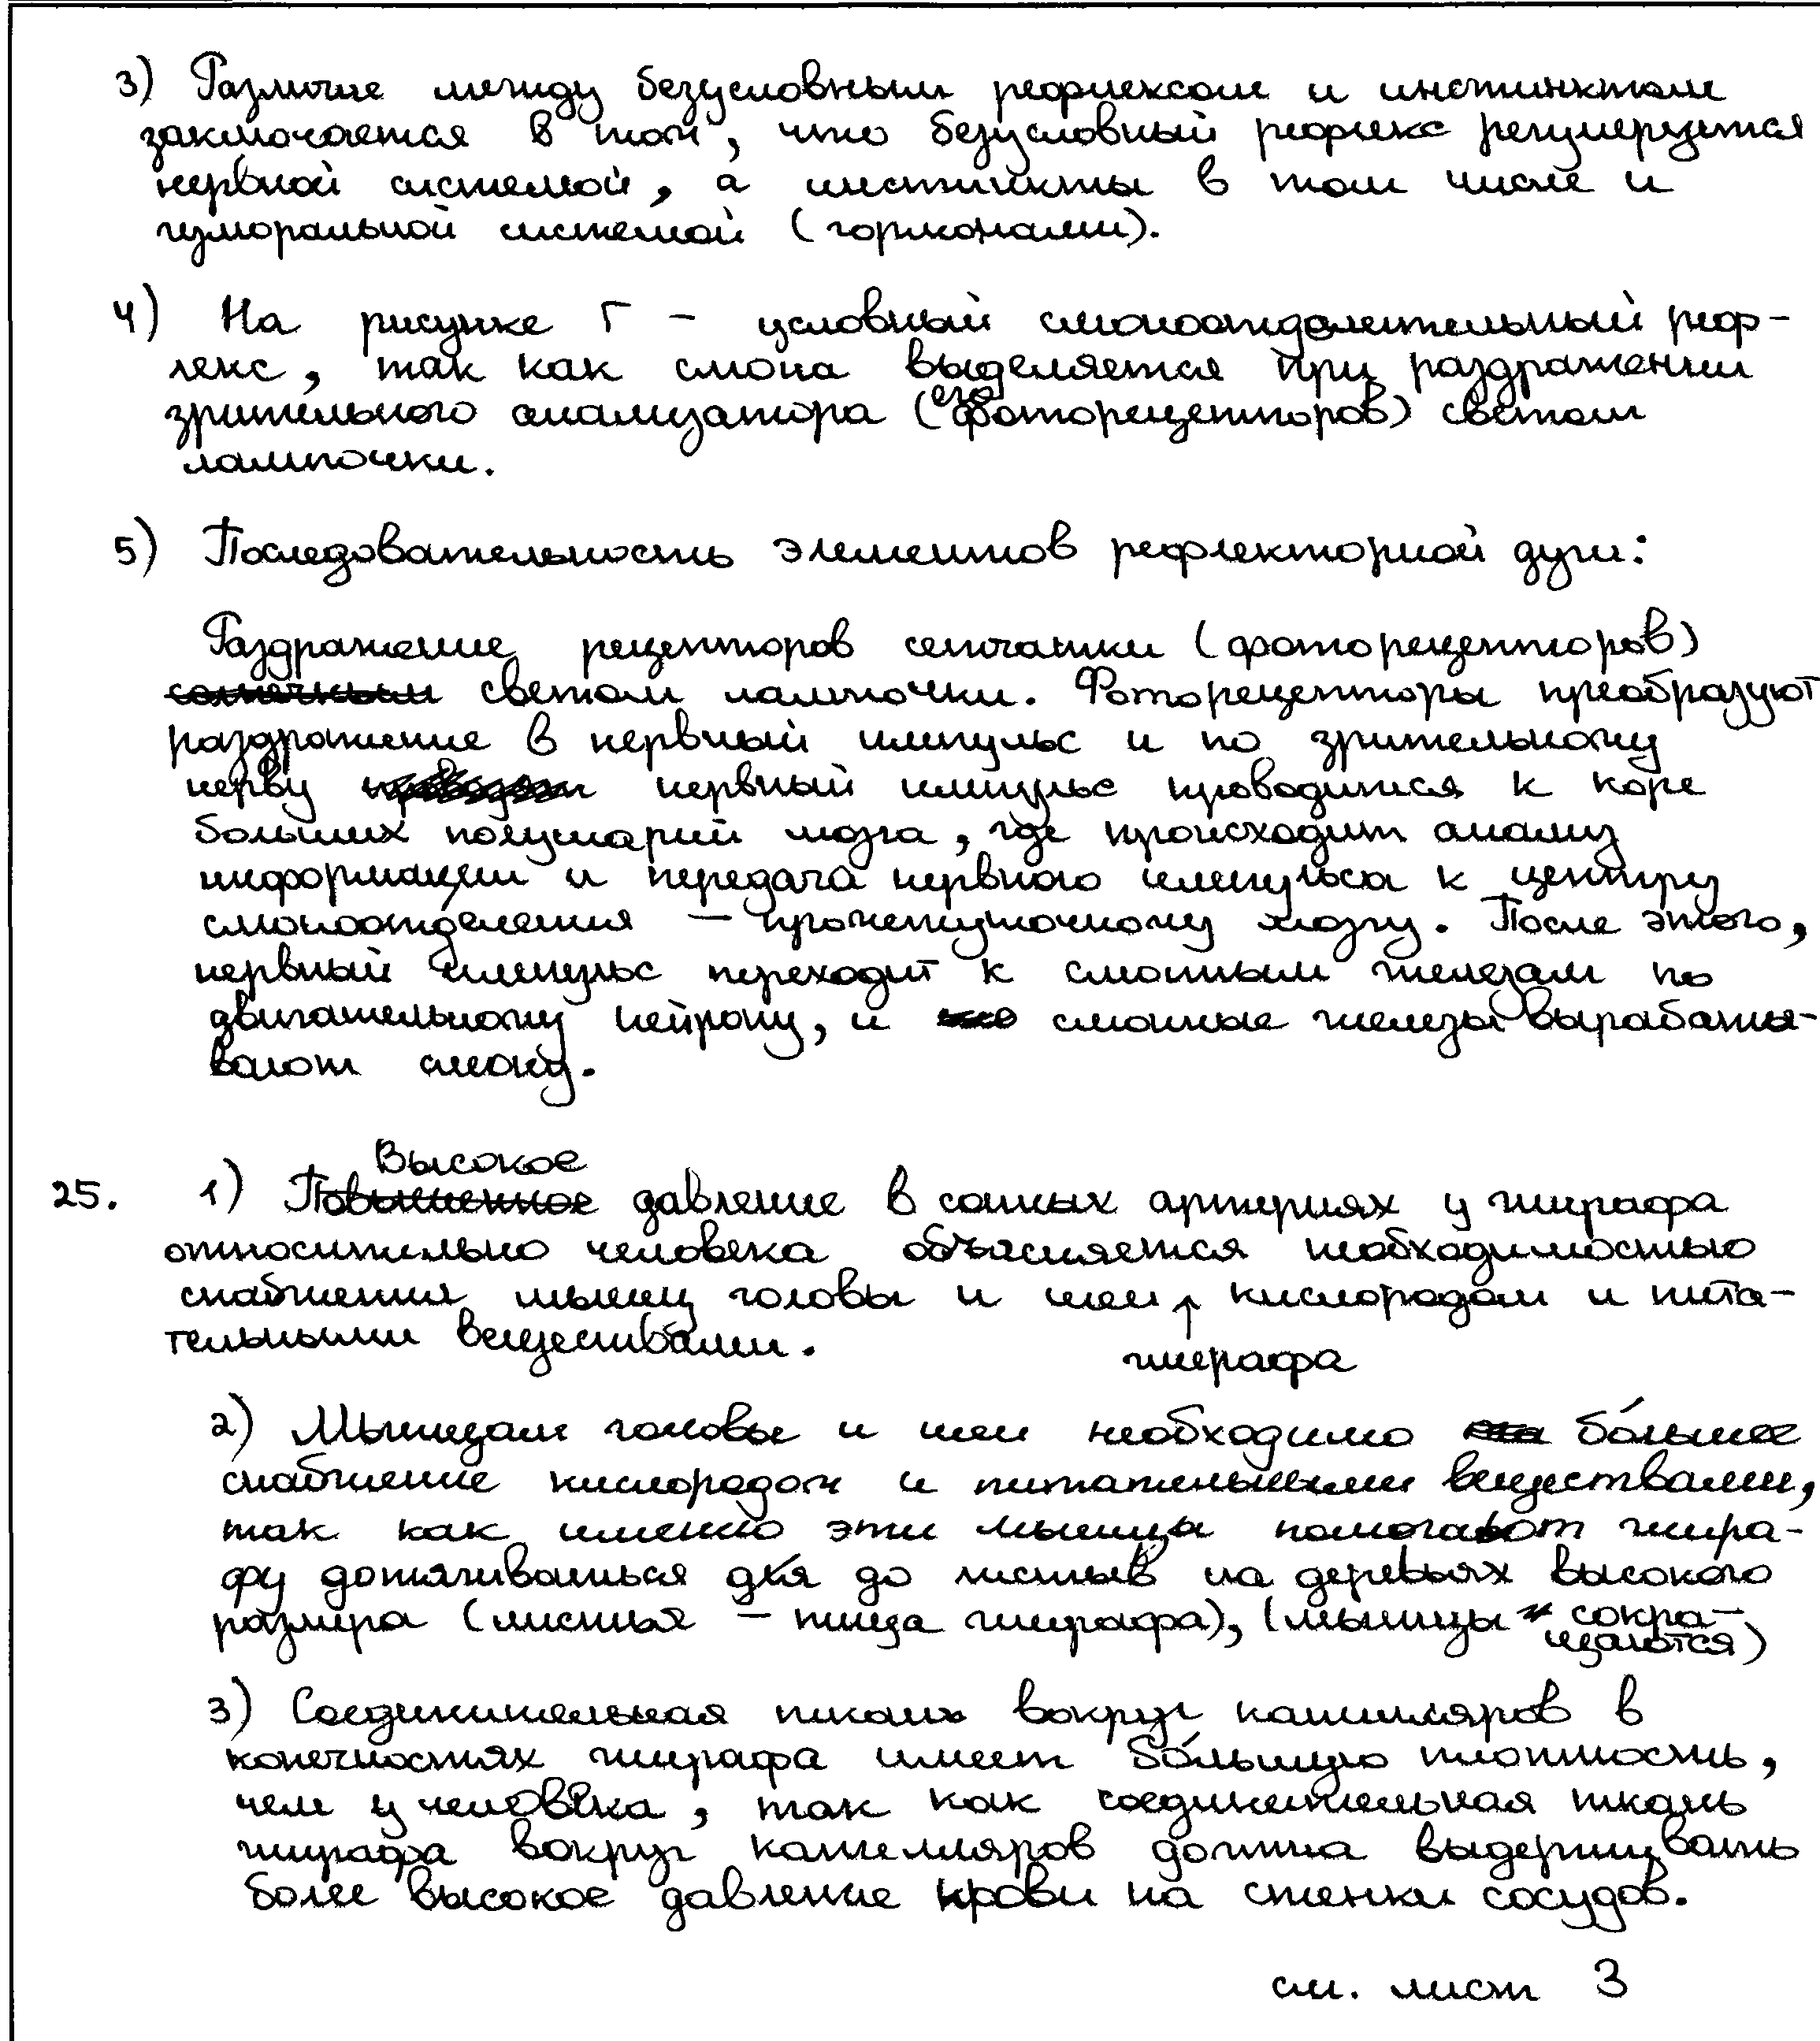 3) Различие между безусловным рефлексом и инстинктом
заключается в том, что безусловный рефлекс регулируется
нервной системой, а инстинкты в том числе и
гуморальной системой (гормонами).
4) На рисунке Г – условный слюноотделительный реф-
лекс, так как слюна выделяется при раздражении
зрительного анализатора (его фоторецепторов) светом
лампочки.
5) Последовательность элементов рефлекторной дуги:
Раздражение рецепторов сетчатки (фоторецепторов)
солнечным светом лампочки. Фоторецепторы преобразуют
раздражение в нервный импульс и по зрительному
нерву нервный импульс проводится к коре
больших полушарий мозга, где происходит анализ
информации и передача нервного импульса к центру
слюноотделения – промежуточному мозгу. После этого,
нервный импульс переходит к слюнным железам по
двигательному нейрону, и слюнные железы вырабаты-
вают слюну.
Высокое
25. 1) Повышенное давление в сонных артериях у жирафа
относительно человека объясняется необходимостью
снабжения мышц головы и шеи ↑ кислородом и пита-
тельными веществами.
жирафа
2) Мышцам головы и шеи необходимо бо́льшее
снабжение кислородом и питательными веществами,
так как именно эти мышцы помогают жира-
фу дотягиваться для до листьев на деревьях высокого
размера (листья – пища жирафа), (мышцы сокра-
щаются)
3) Соединительная ткань вокруг капилляров в
конечностях жирафа имеет бо́льшую плотность,
чем у человека, так как соединительная ткань
жирафа вокруг капилляров должна выдерживать
более высокое давление крови на стенки сосудов.
см. лист 3